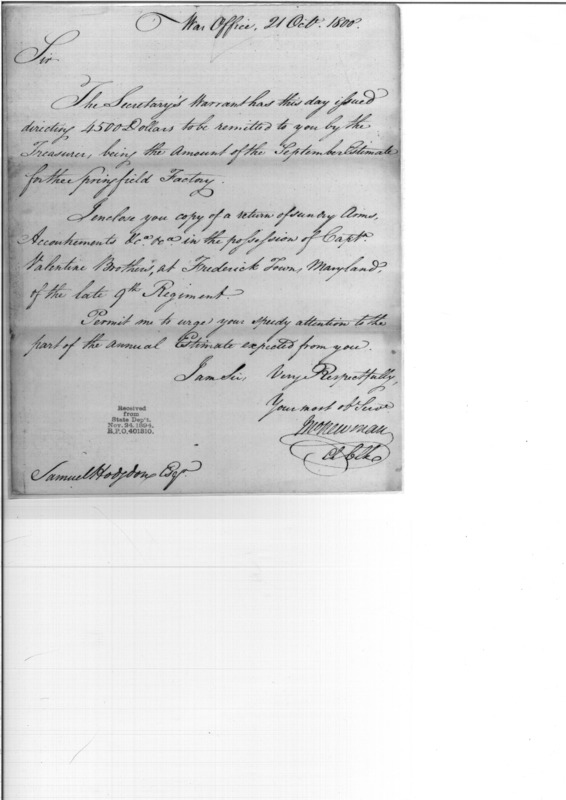 War Office, 21 Octr. 1800.
Sir
The Secretary's Warrant has this day issued
directing 4500 Dollars to be remitted to you by the
Treasurer, being the amount of the September Estimate
for the Springfield Factory.
I enclose you copy of a return of sundry Arms,
Accoutrements &ca &ca in the possession of Captn.
Valentine Brothers, at Frederick Town, Maryland,
of the late 9th Regiment.
Permit me to urge your speedy attention to the
part of the annual Estimate expected from you.
I am Sir, Very Respectfully,
Your most ob Serve
Jno Newman
Received
from
State Dep't.
Nov. 24, 1894.
R.P.O. 401310.
Samuel Hodgdon Esqr.